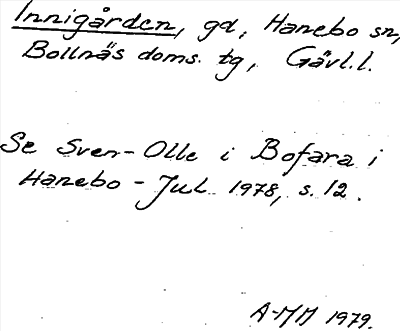 Innigården, gd, Hanebo sn,
Bollnäs doms. tg, Gävl.l.
Se Sven-Olle i Bofara i
Hanebo - Jul 1978, s. 12.
A-MM 1979.